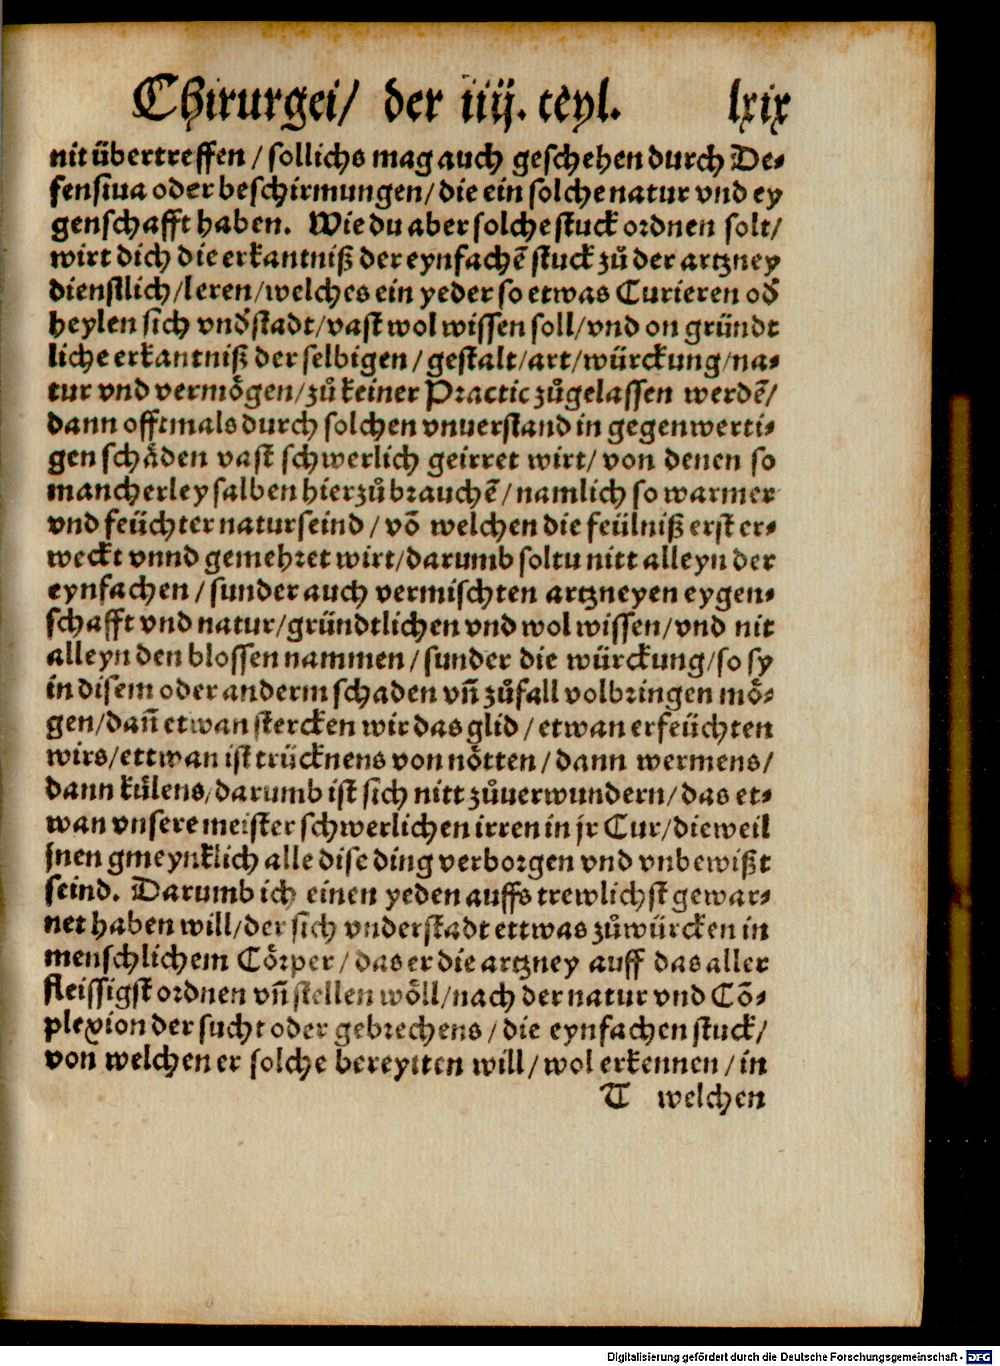 Chirurgei/ der iiij. teyl. lxix
nit übertreffen / sollichs mag auch geschehen durch De⸗
fensiua oder beschirmungen/die ein solche natur vnd ey
genschafft haben. Wie du aber solche stuck ordnen solt/
wirt dich die erkantniß der eynfachẽ stuck zů der artzney
dienstlich/leren/welches ein yeder so etwas Curieren oď
heylen sich vnďstadt/vast wol wissen soll/vnd on gründt
liche erkantniß der selbigen / gestalt/art/würckung/na⸗
tur vnd vermögen/zů keiner Practic zůgelassen werdẽ/
dann offtmals durch solchen vnuerstand in gegenwerti⸗
gen schäden vast schwerlich geirret wirt/ von denen so
mancherley salben hierzů brauchẽ / namlich so warmer
vnd feüchter natur seind / võ welchen die feülniß erst er⸗
weckt vnnd gemehret wirt/darumb soltu nitt alleyn der
eynfachen / sunder auch vermischten artzneyen eygen⸗
schafft vnd natur/gründtlichen vnd wol wissen/vnd nit
alleyn den blossen nammen / sunder die würckung/so sy
in disem oder anderm schaden vñ zůfall volbringen mö⸗
gen/dañ etwan stercken wir das glid / etwan erfeüchten
wirs/ettwan ist trücknens von nötten / dann wermens/
dann kůlens/darumb ist sich nitt zůuerwundern/das et⸗
wan vnsere meister schwerlichen irren in jr Cur/dieweil
jnen gmeynklich alle dise ding verborgen vnd vnbewißt
seind. Darumb ich einen yeden auffs trewlichst gewar⸗
net haben will/der sich vnderstadt ettwas zůwürcken in
menschlichem Cörper / das er die artzney auff das aller
fleissigst ordnen vñ stellen wöll/nach der natur vnd Cõ⸗
plexion der sucht oder gebrechens / die eynfachen stuck/
von welchen er solche bereytten will/wol erkennen / in
T welchen
Digitalisierung gefördert durch die Deutsche Forschungsgemeinschaft - DFG